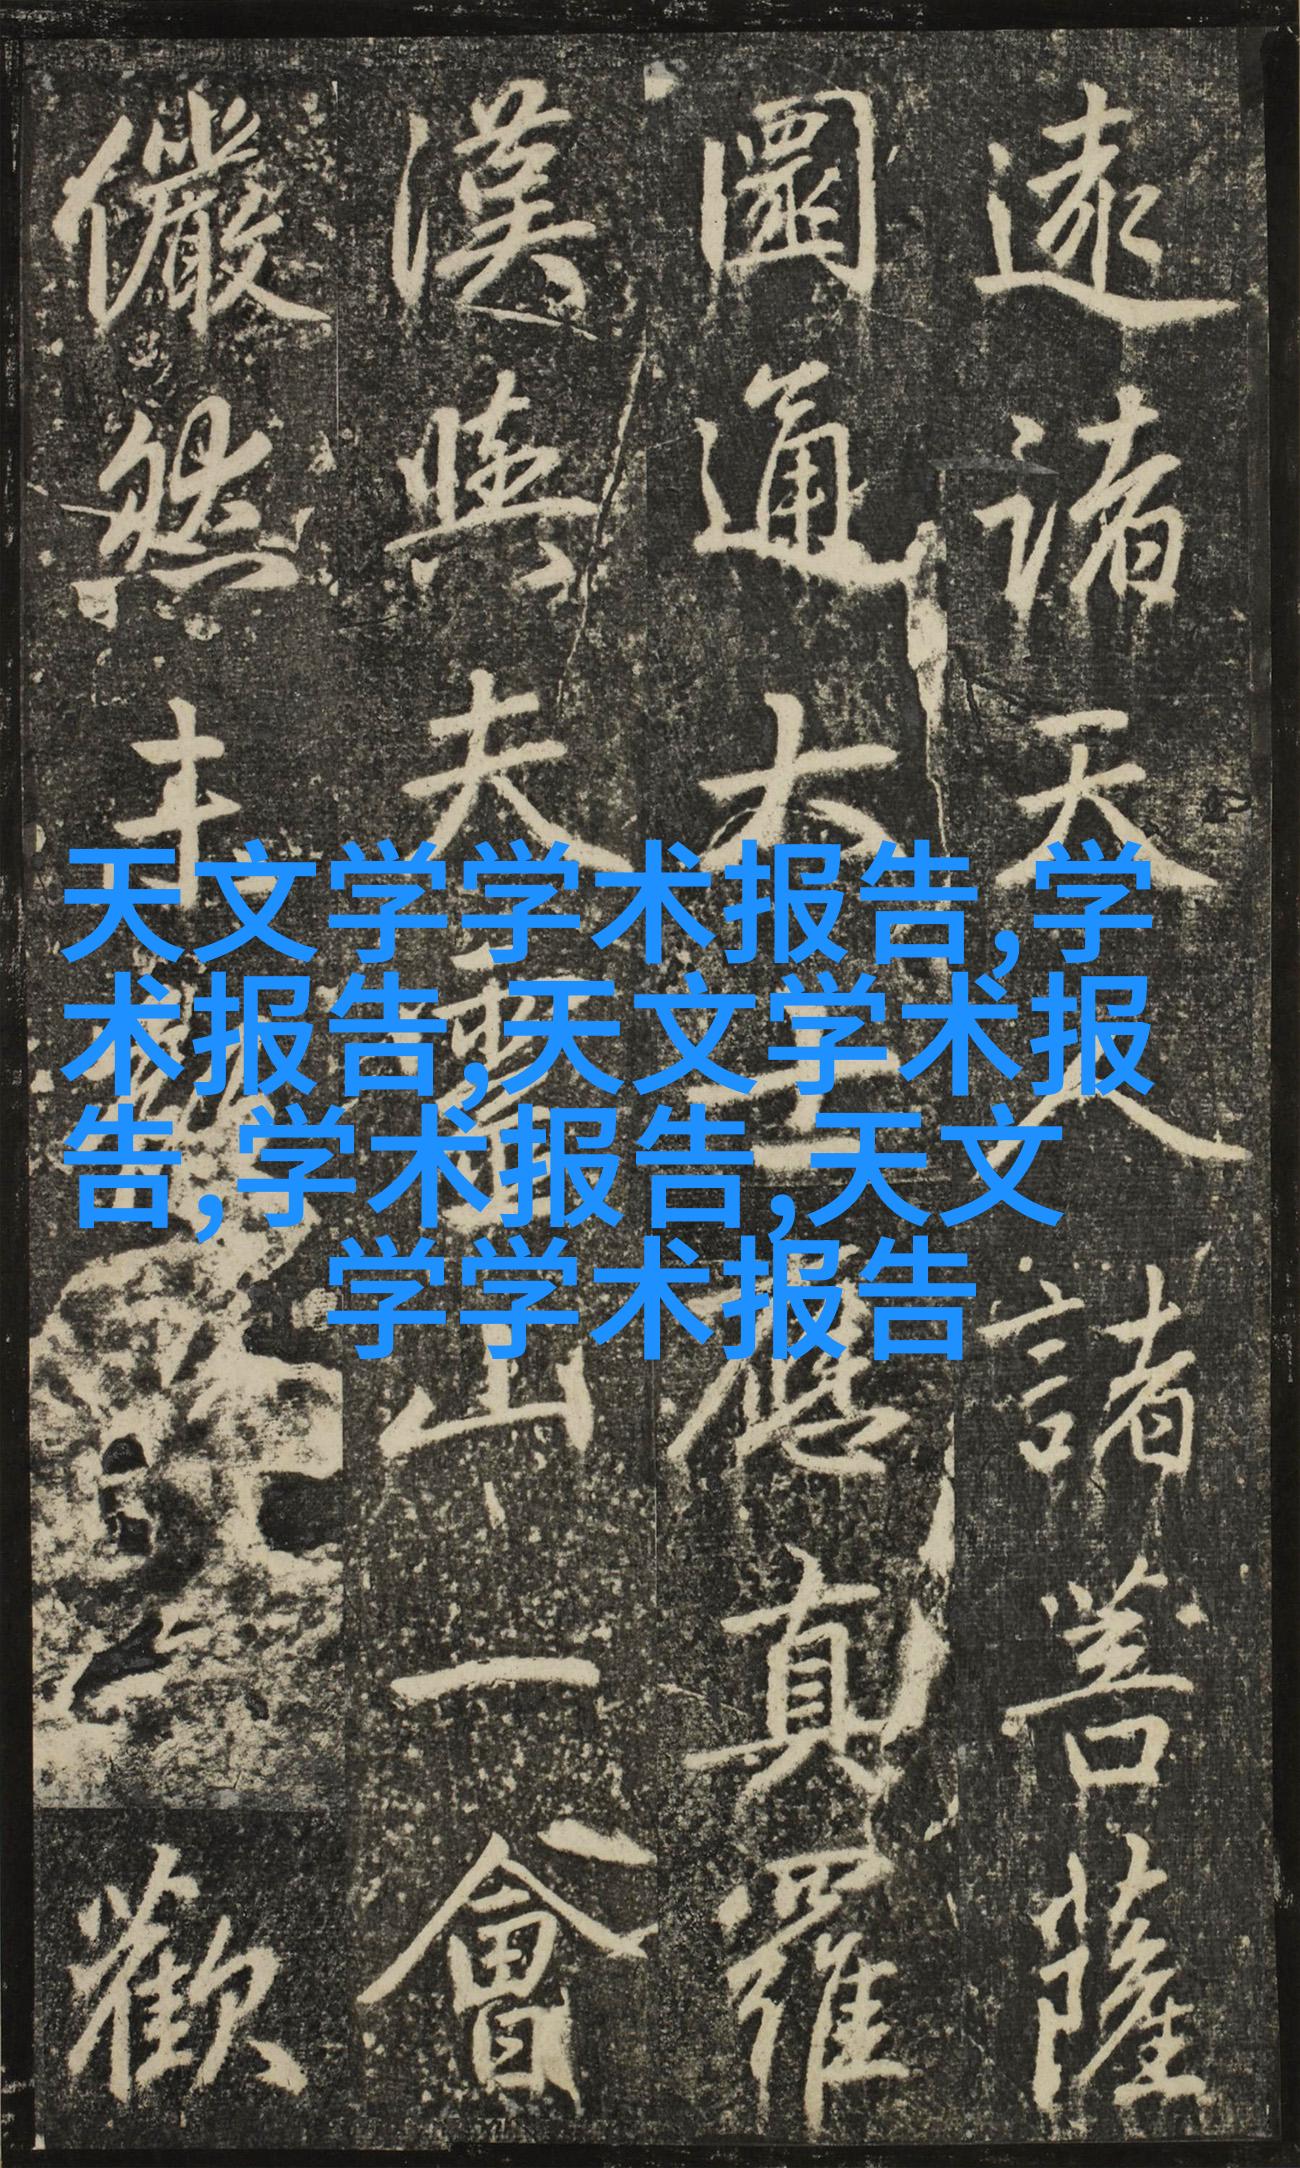 遠諸天人諸菩薩
圓通大士應真羅
漢與夫靈山一會
儼然未歡
天文学学术报告,学
术报告,天文学术报
告,学术报告,天文
学学术报告